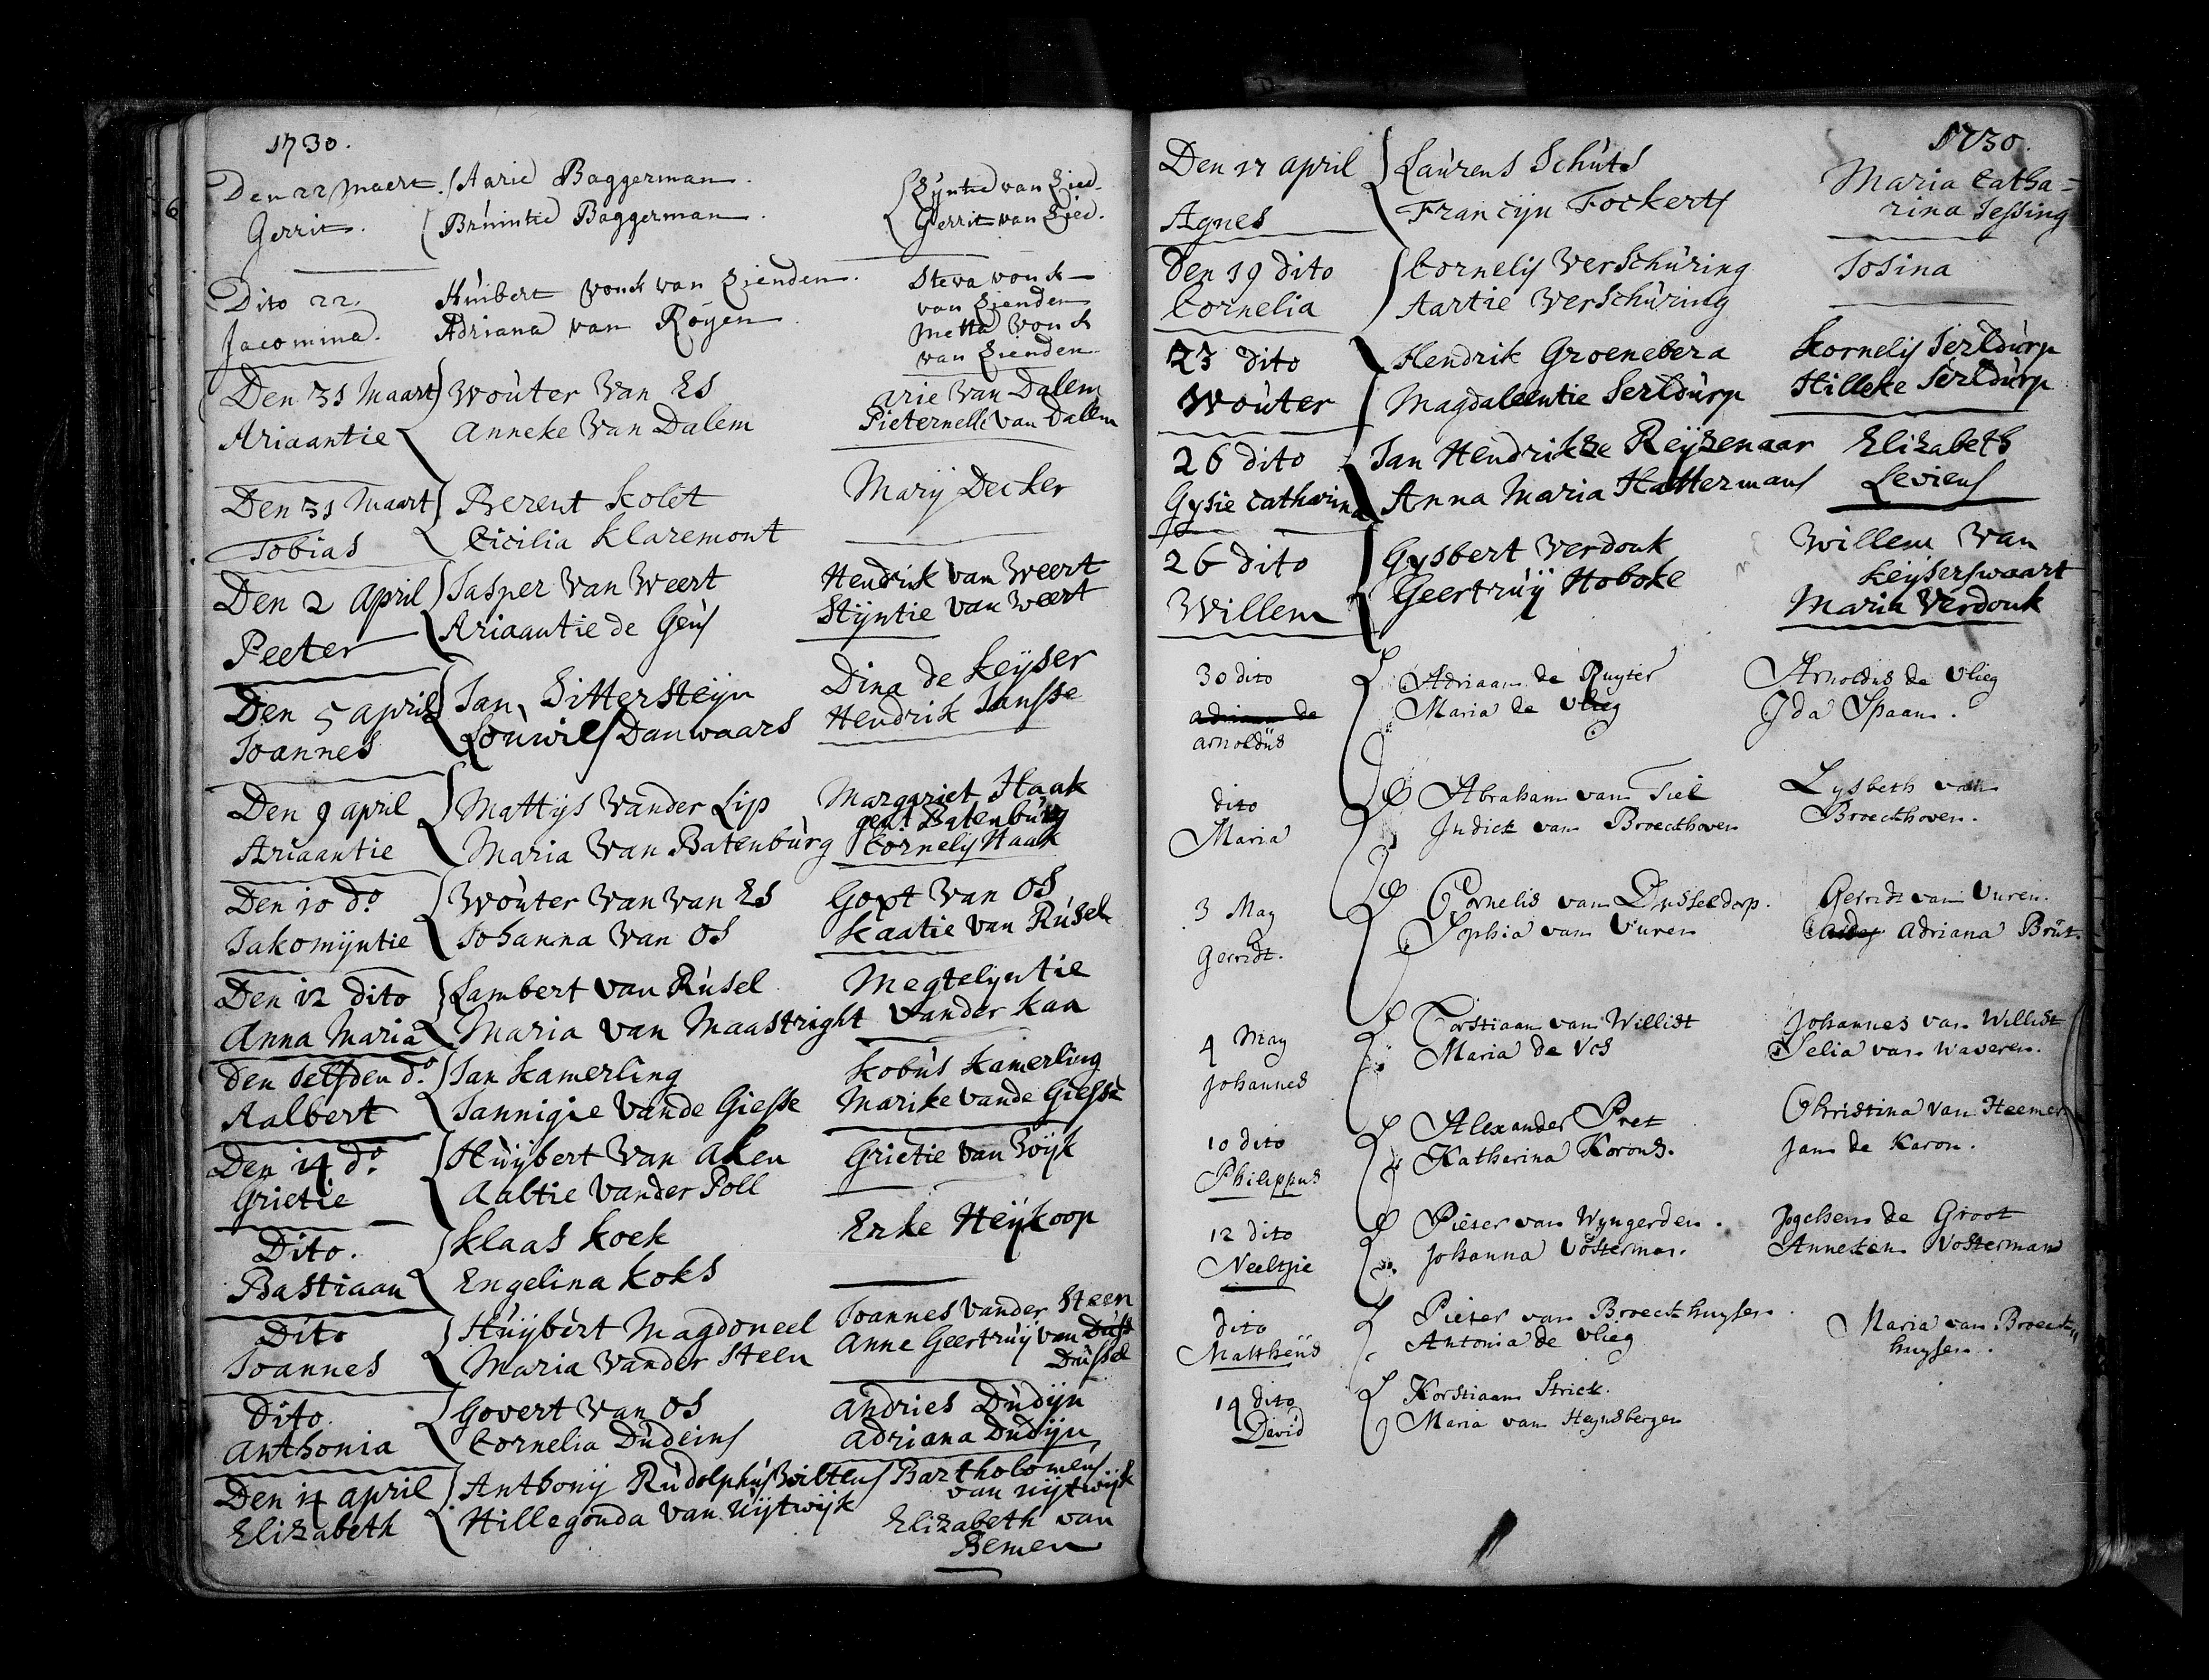 1730.
Den 22 Maert. Aarie Baggerman. Zyntie van Zied.
Gerrit. Bruintie Baggerman. Gerrit van Zied.
Dito 22. Huibert vonk van Lienden. Steva vonk
van Lienden
Jacomina. Adriana van Royen. Metta vonk
van Lienden
Den 31 Maart Wouter Van Es Arie Van Dalem
Ariaantie Anneke Van Dalem Pieternelle van Dalem
Den 31 Maart Berent Kolet Marij Decker
Tobias Cicilia Klaremont
Den 2 April Jasper Van Weert Hendrik van Weert
Peeter Ariaantie de Geus Stijntie van Weert
Den 5 April Jan Sittersteijn Dina de Keijser
Joannes Louwies Danwaars Hendrik Jansse
Den 9 april Mattijs Vander Lip Margariet Haak
gen.t Batenburg
Ariaantie Maria Van Batenburg Cornelis Haak
Den 10 do. Wouter Van Van Es Gort Van Os
Jakomijntie Johanna Van Os Kaatie van Rusel
Den 12 dito Lambert van Rusel Megtelijntie
Anna Maria Maria van Maastright vander Kaa
Den Selfden do. Jan Kamerling Kobus Kamerling
Aalbert Jannigie vande Giesse Marike vande Giesse
Den 14 do. Huijbert Van Aken Grietie van Wijk
Grietie Aaltie Vander Poll
Dito. Klaas Koek Erke Heijkoop
Bastiaan Engelina Koks
Dito Huijbert Magdoneel Joannes vander Steen
Joannes Maria Vander Steen Anne Geertruij van
Dussel
Dito Govert Van Os Andries Dudijn
Anthonia Cornelia Dudeins Adriana Dudijn
Den 14 april Anthonij Rudolphus Wiltens Bartholomeus
van Uijtwijk
Elizabeth Hillegonda van Uijtwijk Elizabeth van
Bemen
1730.
Den 17 april Laurens Schuts Maria Catha=
Agnes Francijn Fockerts rina Jessing
Den 19 dito Cornelis Verschuring Josina
Cornelia Aartie Verschuring
23 dito Hendrik Groeneberg Kornelis Serldurp
Wouter Magdaleentie Serldurp Hilleke Serldurp
26 dito Jan Hendrikze Reijzenaar Elizabeth
Gysie Catharina Anna Maria Hattermans Leviens
26 dito Gysbert Verdonk Willem Van
Keyserswaart
Willem Geertruij Hoboke Maria Verdonk
30 dito Adriaan de Ruyter Arnoldus de Vlieg
adriaan de Maria de Vlieg Ida Spaan.
arnoldus
dito Abraham van Tiel Lysbeth van
Maria Judick van Broeckhoven Broeckhoven.
3 May Cornelis van Dusseldorp. Gerridt van Vuren.
Gerridt. Sophia van Vuren Adriana Brut.
4 May Corstiaan van Willist Johannes van Willist
Johannes Maria de Vos Selia van Waveren.
10 dito Alexander Pret Christina van Heemer
Philippus Katharina Korons. Jan de Karon.
12 dito Pieter van Wyngerden. Jochem de Groot
Neeltjie Johanna Vosterman. Anneken Vosterman
dito Pieter van Broeckhuysen. Maria van Broeck
Mattheus Antonia de Vlieg huysen.
14 dito Korstiaan Strick.
David Maria van Heynsbergen